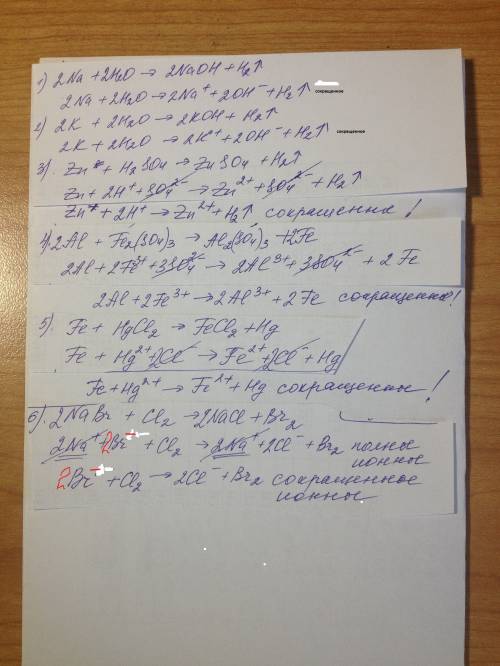 1) 2Na + 2H2O → 2NaOH + H2↑
2Na + 2H2O → 2Na⁺ + 2OH⁻ + H2↑ сокращенное
2) 2K + 2H2O → 2KOH + H2↑
2K + 2H2O → 2K⁺ + 2OH⁻ + H2↑ сокращенное
3). Zn + H2SO4 → ZnSO4 + H2↑
Zn + 2H⁺ + SO4²⁻ → Zn²⁺ + SO4²⁻ + H2↑
Zn + 2H⁺ → Zn²⁺ + H2↑ сокращенное!
4). 2Al + Fe2(SO4)3 → Al2(SO4)3 + 2Fe
2Al + 2Fe³⁺ + 3SO4²⁻ → 2Al³⁺ + 3SO4²⁻ + 2Fe
2Al + 2Fe³⁺ → 2Al³⁺ + 2Fe сокращенное!
5). Fe + HgCl2 → FeCl2 + Hg
Fe + Hg²⁺ + 2Cl⁻ → Fe²⁺ + 2Cl⁻ + Hg
Fe + Hg²⁺ → Fe²⁺ + Hg сокращенное!
6). 2NaBr + Cl2 → 2NaCl + Br2
2Na⁺ + 2Br⁻ + Cl2 → 2Na⁺ + 2Cl⁻ + Br2 полное
ионное
2Br⁻ + Cl2 → 2Cl⁻ + Br2 сокращенное
ионное